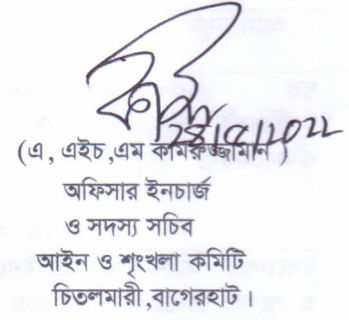 (এ, এইচ,এম কামরুজ্জামান)
অফিসার ইনচার্জ
ও সদস্য সচিব
আইন ও শৃংখলা কমিটি
চিতলমারী,বাগেরহাট